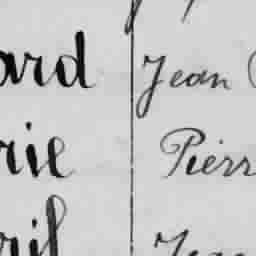 ard Jean
rie Pierr
ril Jean